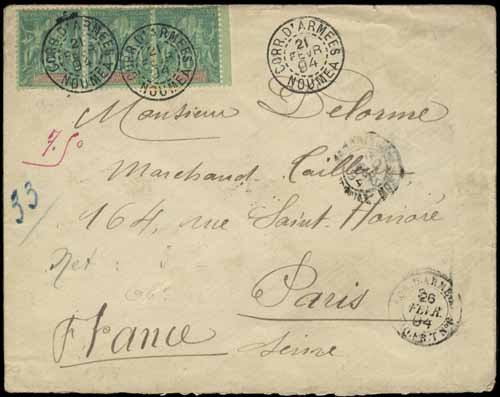 CORR. D'ARMÉES
21
FEVR
04
NOUMEA
CORR. D'ARMÉES
21
FEVR
04
NOUMEA
CORR. D'ARMÉES
21
FEVR
04
NOUMEA
Monsieur Delorme
7.50
Marchand Tailleur
33
164, rue Saint-Honoré
Net :
Paris
26
FEVR.
04
France
Seine